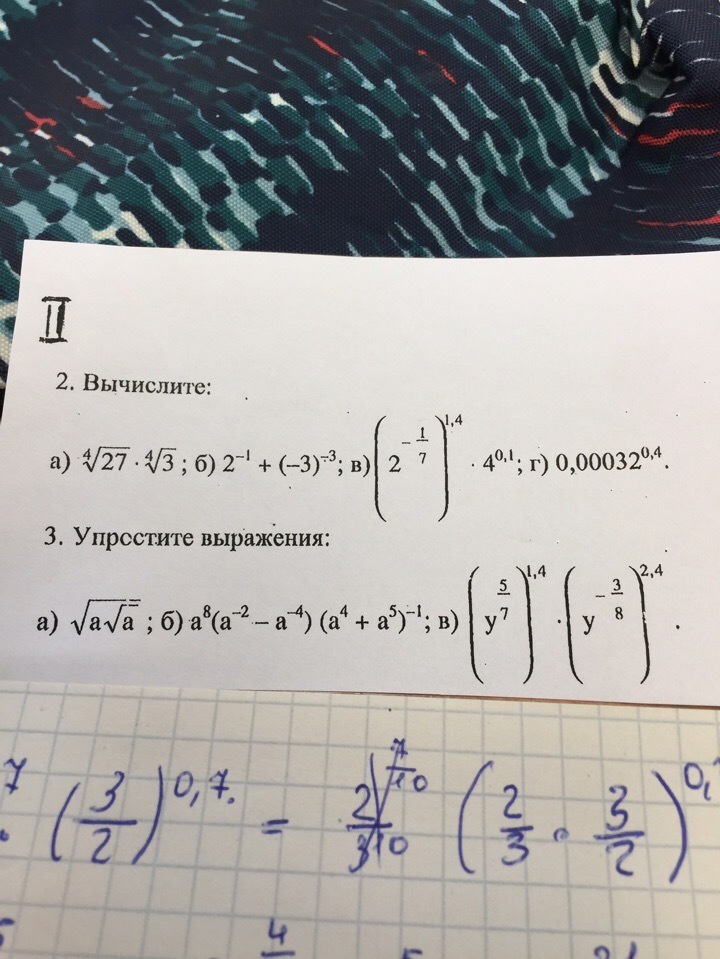 II
2. Вычислите:
а) ⁴√27 · ⁴√3 ; б) 2⁻¹ + (–3)⁻³; в) (2^(–1/7))^1,4 · 4^0,1; г) 0,00032^0,4.
3. Упростите выражения:
а) √(a√a) ; б) a⁸(a⁻² – a⁻⁴) (a⁴ + a⁵)⁻¹; в) (y^(5/7))^1,4 · (y^(–3/8))^2,4 .
7 (3/2)^0,7. = (2/3 · 3/2)^0,
4